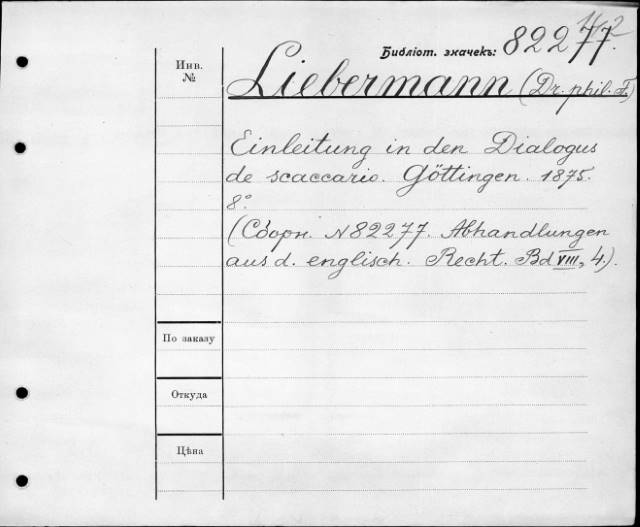 Библіот. значекъ: 82277.
Инв.
№
Liebermann (Dr. phil. F.)
Einleitung in den Dialogus
de scaccario. Göttingen. 1875.
8°
(Сборн. N 82277. Abhandlungen
aus d. englisch. Recht. Bd VIII, 4.).
По заказу
Откуда
Цѣна